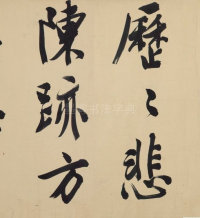 歷〻悲
陳跡方